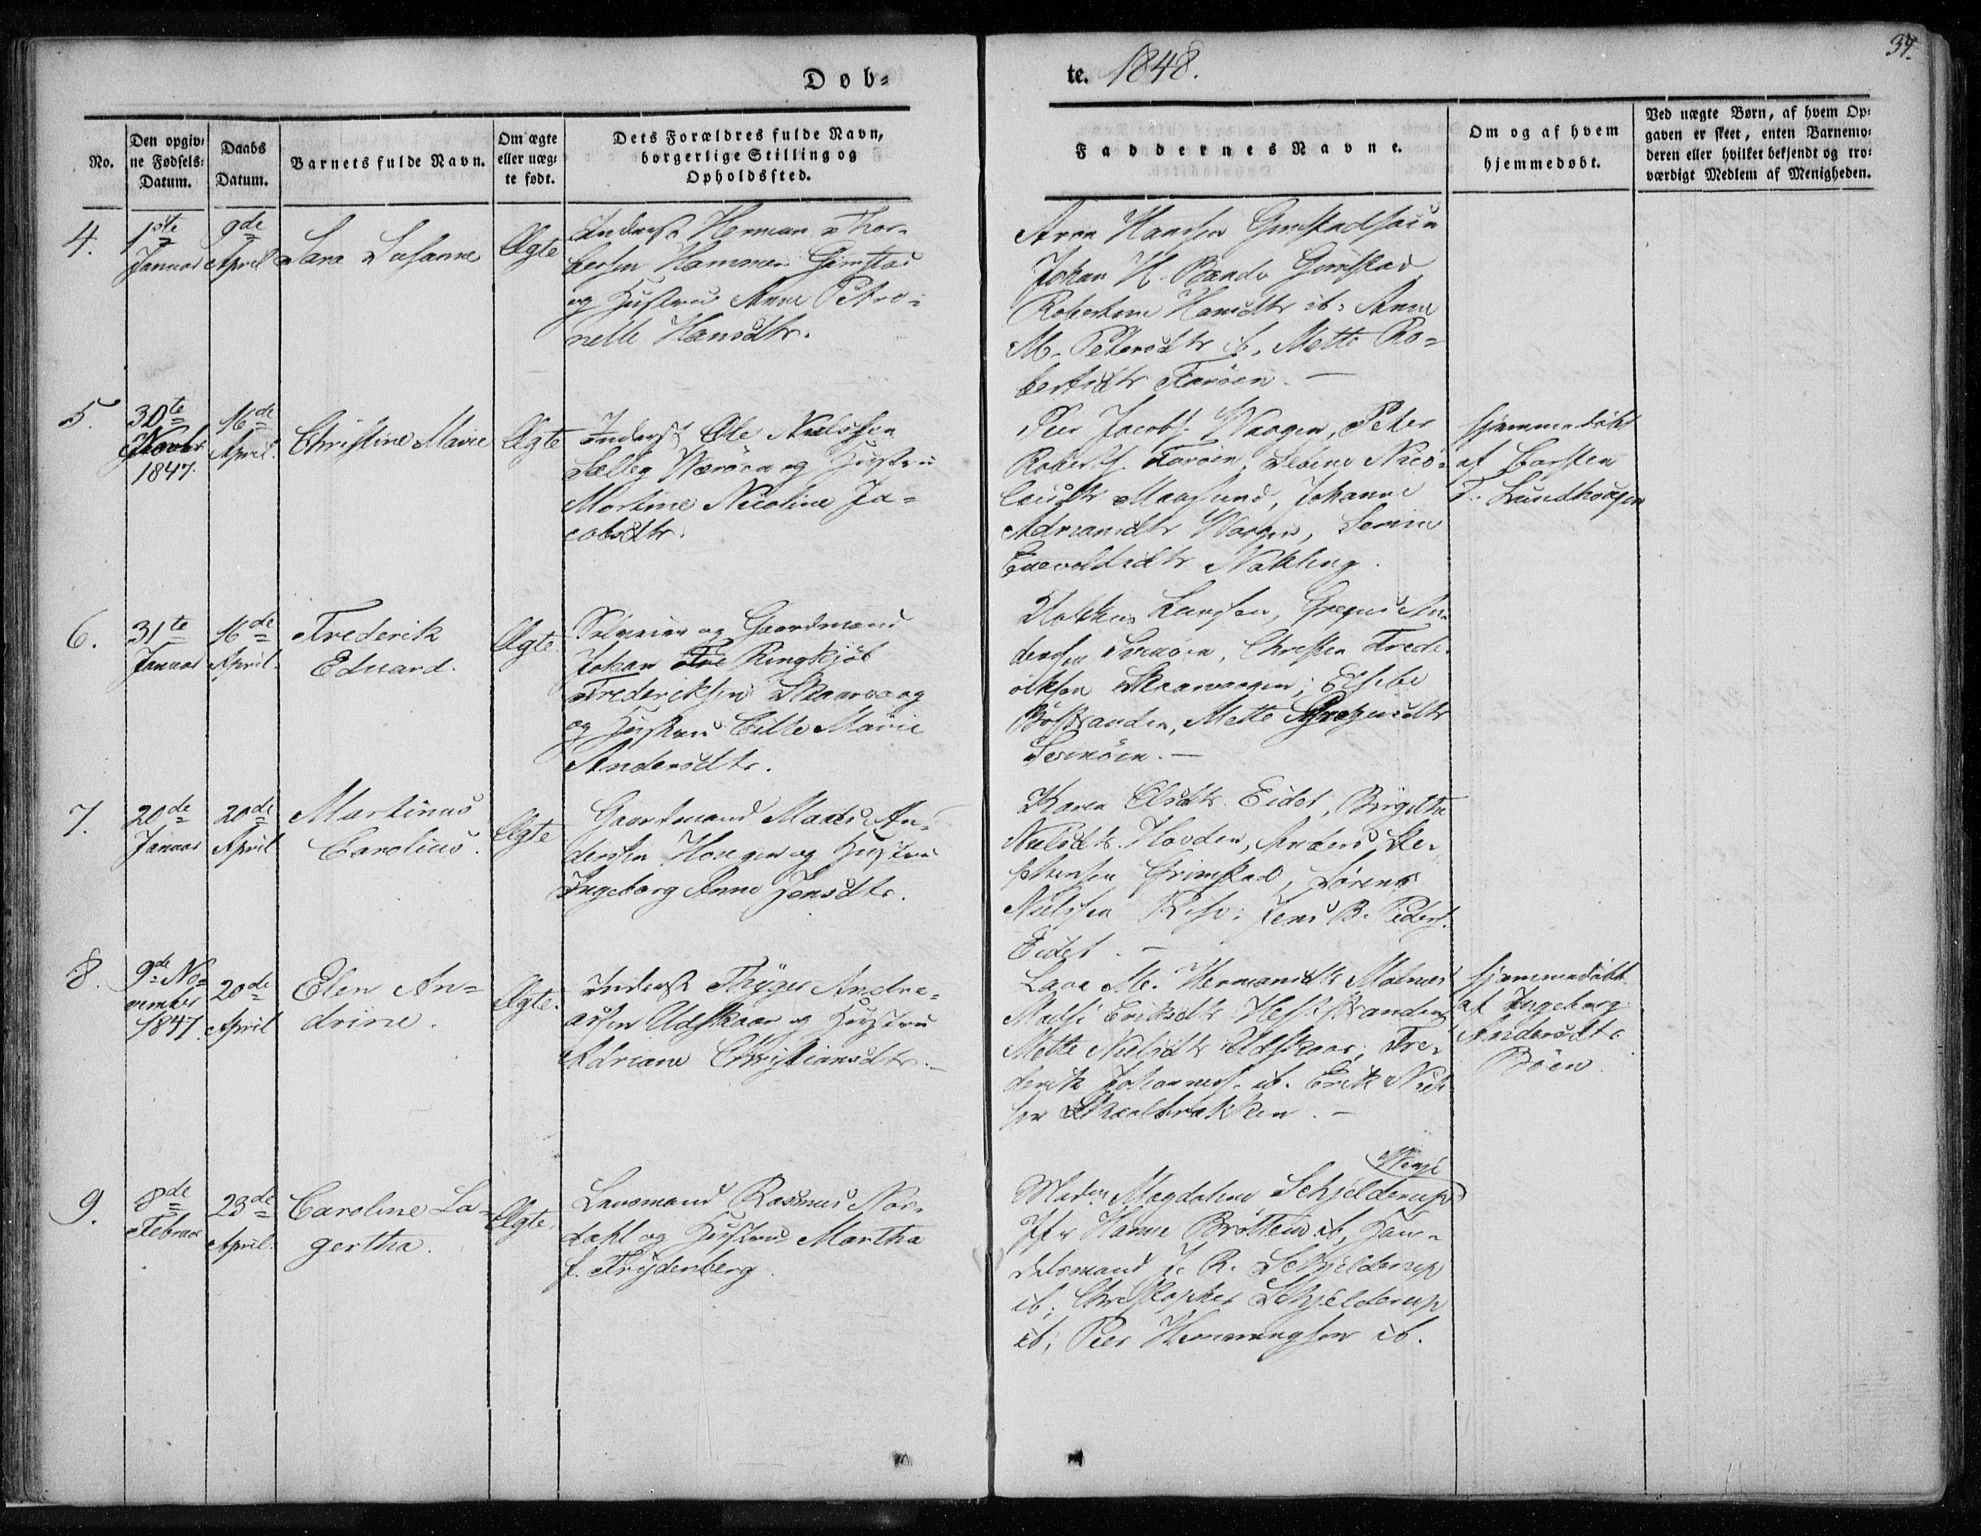 Døb-
te. 1848.
37.
No.
Den opgiv-
ne Fødsels-
Datum.
Daabs
Datum.
Barnets fulde Navn.
Om ægte
eller uæg-
te født.
Dets Forældres fulde Navn,
borgerlige Stilling og
Opholdssted.
Faddernes Navne.
Om og af hvem
hjemmedøbt.
Ved uægte Børn, af hvem Op-
gaven er skeet, enten Barnemo-
deren eller hvilket bekjendt og tro-
værdigt Medlem af Menigheden.
4.
1ste
Januar
9de
April
Sara Susanne
Ægte
Inderst Herman Thor-
bersen Hammer Grimstad
og Hustru Anne Petro-
nelle Hansdtr.
Aron Hansen Grimstad
Johan H. Grimstad
Hansdtr ib. Anne
M. Petersdtr ib. Mette Ro-
bertsdtr Farøen. —
5.
30te
Novbr
1847.
16de
April.
Christine Marie
Ægte
Inderst Ole Nielssen
og Hustru
Martine Nicoline Ja-
cobsdtr.
Peer Jacobs. Waagen, Peter
Roberts. Farøen,
Johanne
Adriansdtr Waagen,
Enevoldsdtr Nøkling.
hjemmedøbt
af Carsten
T. Sundhaagen
6.
31te
Januar
16de
April.
Frederik
Eduard.
Ægte.
og Gaardmand
Johan Ringkjøb
Frederiksen Skaarvaag
og Hustru Cille Marie
Andersdtr.
Larssen,
Christen Frede-
riksen Skaarvaagen; Elsebe
Mette Gregersdtr
7.
20de
Januar
20de
April
Martinus
Carolius.
Ægte
Gaardmand Mads An-
dersen Haugen og Hustru
Ingeborg Anne Jensdtr.
Karen Olsdtr. Eidet, Birgitte
Nielsdtr. Hovden, Anders Ste-
phensen Grimstad, Sørens
Nielssen Jens B. Peders.
Eidet. —
8.
9de No-
vember
1847.
20de
April
Elen An-
drine.
Ægte.
Inderst Thyger Andre-
assen Udskaar og Hustru
Adriane Christiansdtr. —
Lava M. Hermansdtr Malnes
Madsi Eriksdtr
Mette Nielsdtr Udskaar; Fre-
derik Johannes. ib. Erik Niels-
sen
hjemmedøbt
af Ingeborg
Andersdtr
Bøen.
9.
8de
Februar
23de
April.
Caroline La-
gertha.
Ægte.
Lensmand Rasmus Nor-
dahl og Hustru Martha
f. Frydenberg.
Madm Magdalene Schjelderup
Jfr Hanne ib, Han-
delsmand J. R. Schjelderup
ib; Christopher Schjelderup
ib; Peer Hemmingsen ib.